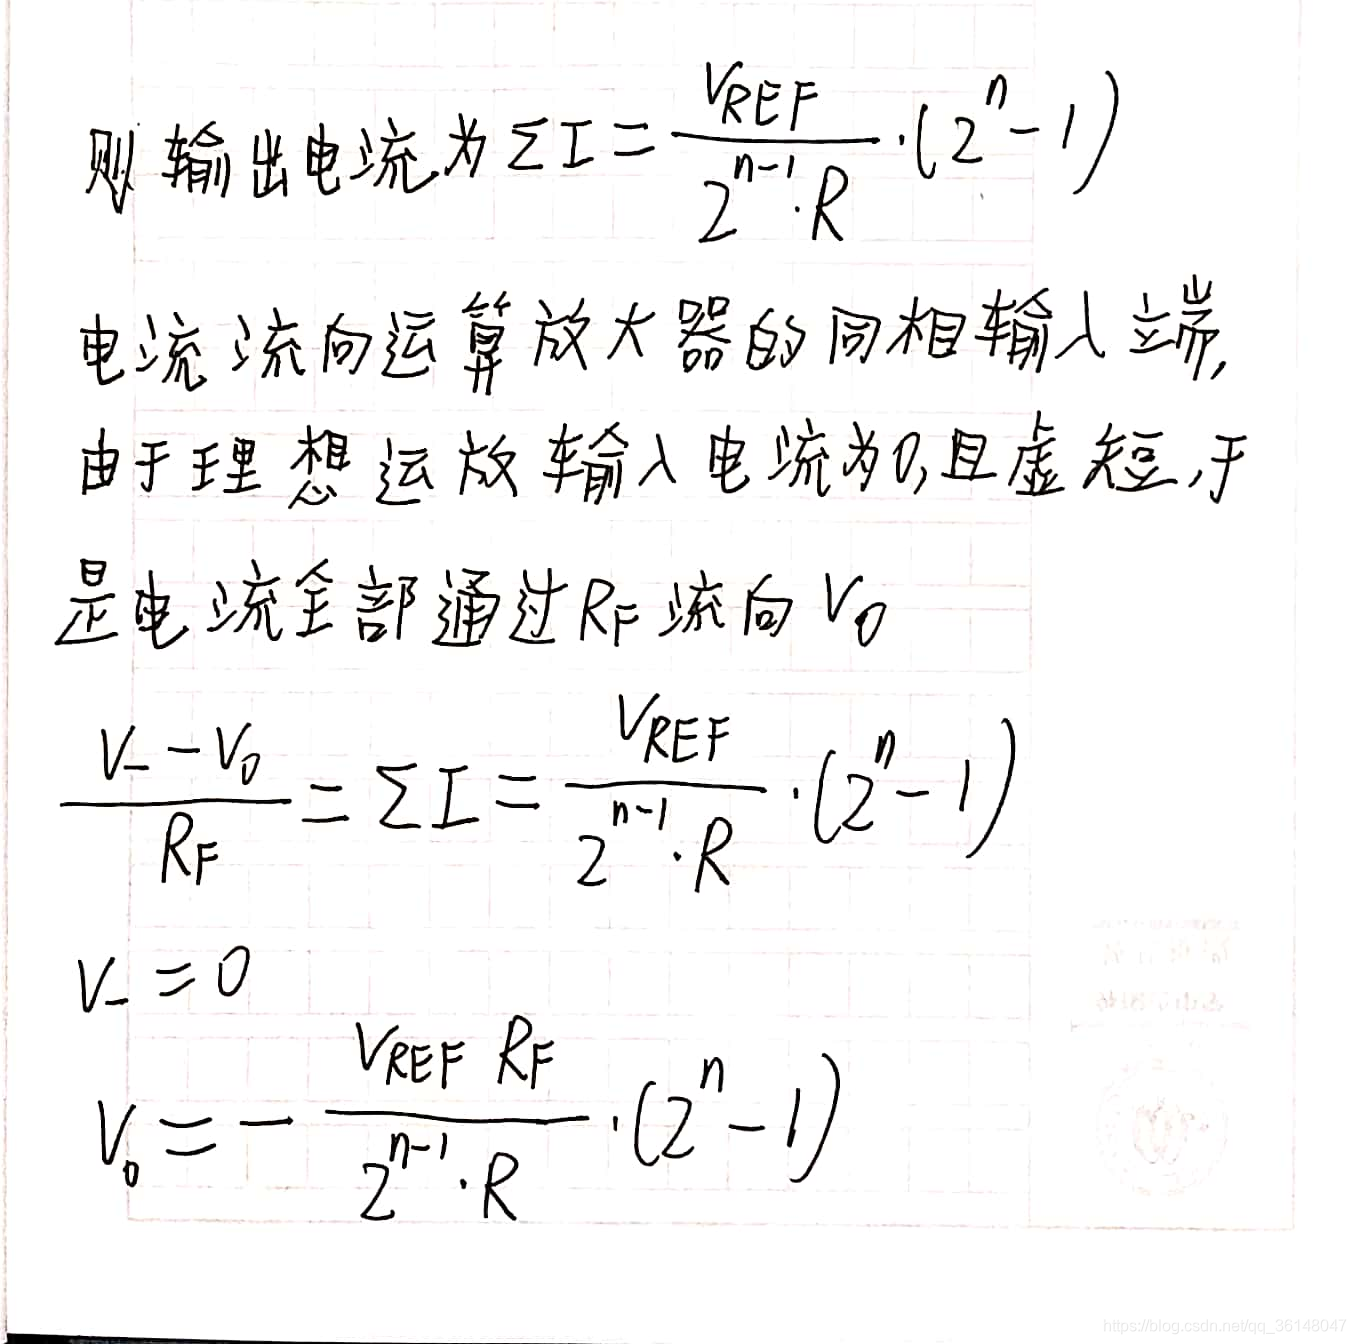 则输出电流为ΣI = V_REF / (2^(n-1)·R) ·(2^n - 1)
电流流向运算放大器的同相输入端,
由于理想运放输入电流为0,且虚短,于
是电流全部通过R_F流向V_0
(V_- - V_0) / R_F = ΣI = V_REF / (2^(n-1)·R) ·(2^n - 1)
V_- = 0
V_0 = - V_REF R_F / (2^(n-1)·R) ·(2^n - 1)
https://blog.csdn.net/qq_36148047